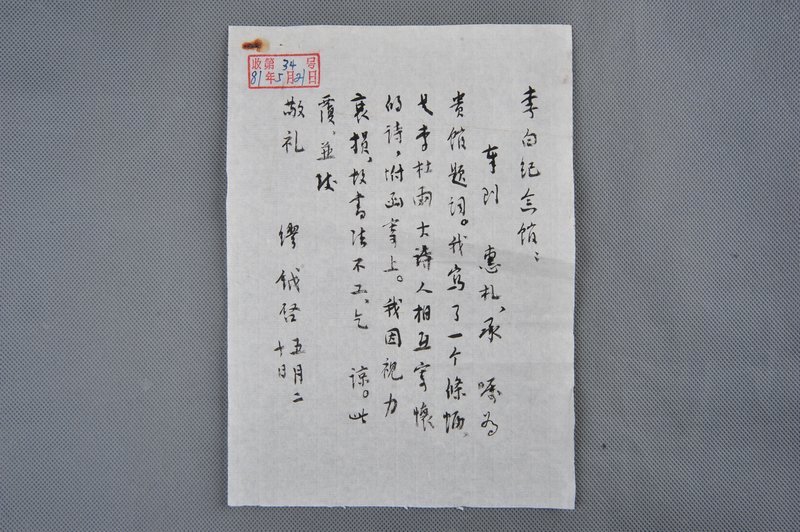 收第34号
81年5月21日
李白纪念馆：
奉到 惠札，承 嘱为
贵馆题词。我写了一个條幅，
是李杜兩大诗人相互寄懷
的诗，附函寄上。我因视力
衰损，故书法不工，乞 谅。此
覆，並致
敬礼
缪钺启 五月二
十日